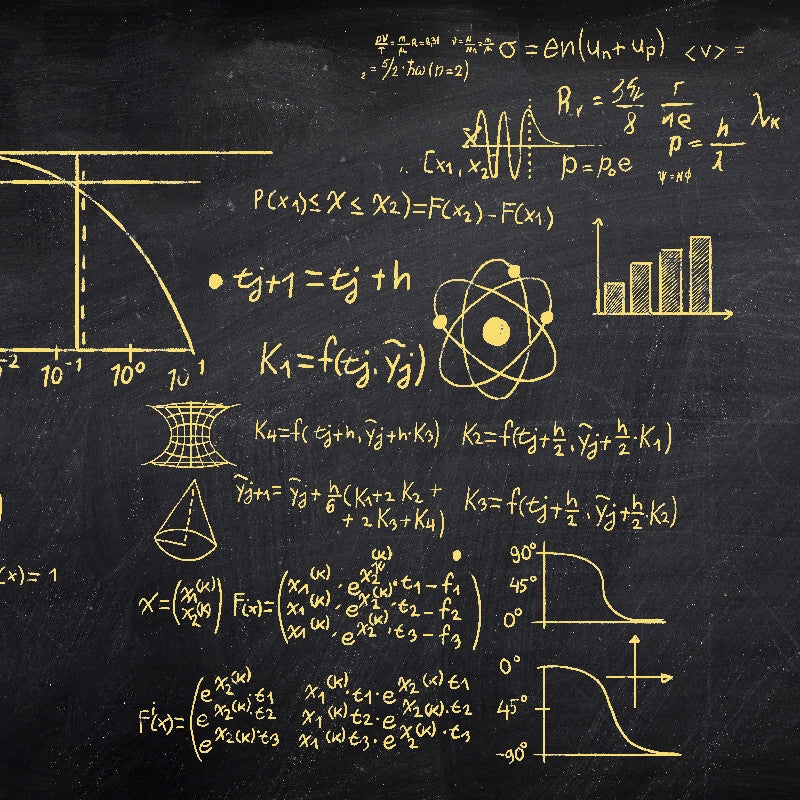 σ = en(uₙ + uₚ) <v> =
₂ = 5/2 · ħω (n = 2)
λ_K
p = h/λ
[x₁, x₂] p = p₀e
ψ = Nϕ
P(x₁) ≤ X ≤ x₂) = F(x₂) - F(x₁)
• tj+1 = tj + h
K₁ = f(tj, ỹj)
10⁻¹ 10⁰ 10¹
K₄ = f(tj + h, ỹj + h · K₃) K₂ = f(tj + h/2, ỹj + h/2 · K₁)
ỹj+1 = ỹj + h/6 (K₁ + 2 K₂ +
+ 2 K₃ + K₄)
K₃ = f(tj + h/2, ỹj + h/2 · K₂)
(x) = 1
90°
45°
0°
X = (x₁⁽ᵏ⁾ x₂⁽ᵏ⁾) F(x) = (x₁⁽ᵏ⁾ · e^x₂⁽ᵏ⁾ · t₁ - f₁
x₁⁽ᵏ⁾ · e^x₂⁽ᵏ⁾ · t₂ - f₂
x₁⁽ᵏ⁾ · e^x₂⁽ᵏ⁾ · t₃ - f₃)
0°
45°
-90°
e^x₂⁽ᵏ⁾ · t₁ x₁⁽ᵏ⁾ · t₁ · e^x₂⁽ᵏ⁾ t₁
F(x) = (e^x₂⁽ᵏ⁾ · t₂ x₁⁽ᵏ⁾ t₂ · e^x₂⁽ᵏ⁾ · t₂
e^x₂⁽ᵏ⁾ · t₃ x₁⁽ᵏ⁾ t₃ · e^x₂⁽ᵏ⁾ · t₃